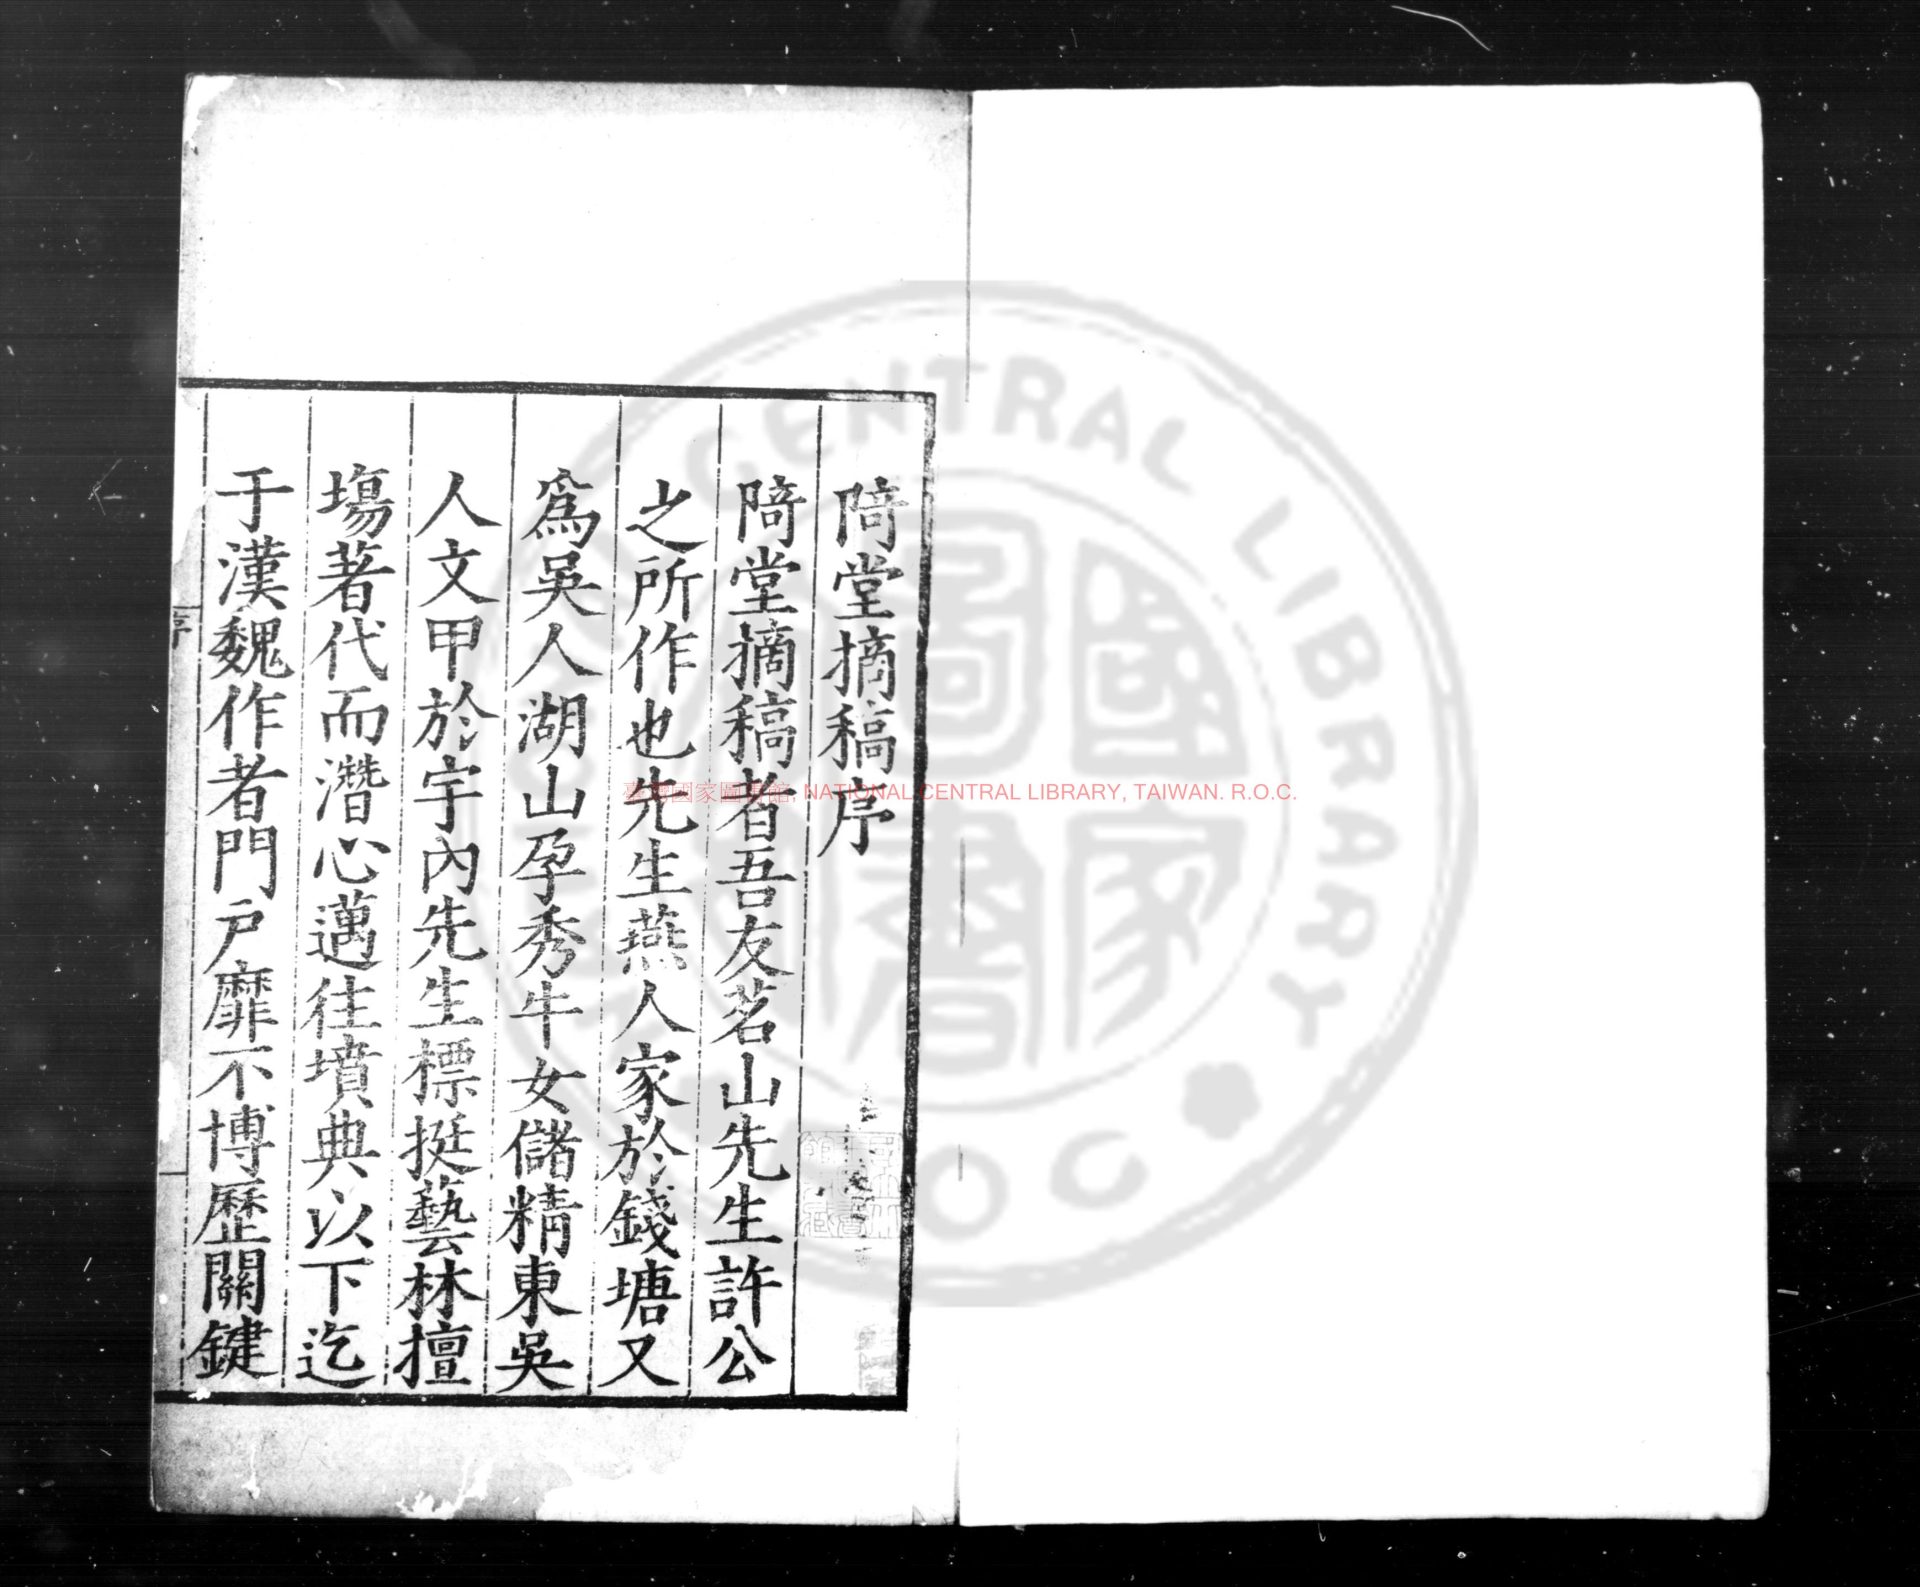 陭堂摘稿序
陭堂摘稿者吾友茗山先生許公
之所作也先生燕人家於錢塘又
爲吳人湖山孕秀牛女儲精東吳
人文甲於宇內先生標挺藝林擅
塲著代而潛心邁往墳典以下迄
于漢魏作者門戶靡不博歷關鍵
序
臺灣國家圖書館, NATIONAL CENTRAL LIBRARY, TAIWAN. R.O.C.
CENTRAL LIBRARY
國家圖書